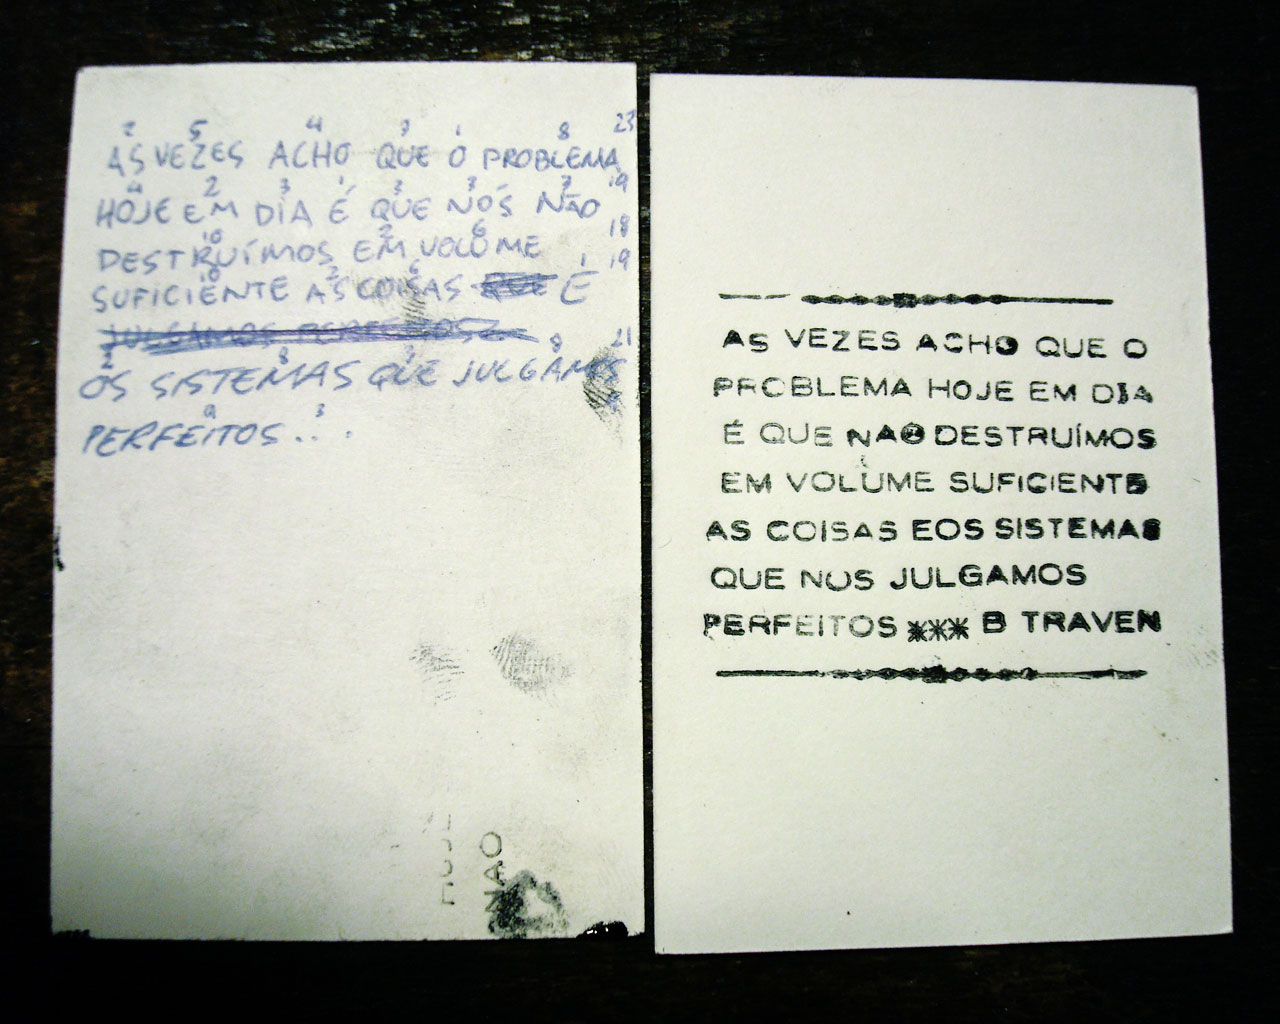 2 5 4 3 1 8 23
AS VEZES ACHO QUE O PROBLEMA
4 2 3 1 3 3 3 19
HOJE EM DIA É QUE NÓS NÃO
10 2 6 18
DESTRUÍMOS EM VOLUME
10 2 6 1 19
SUFICIENTE AS COISAS É
2 8 3 8 21
OS SISTEMAS QUE JULGAMOS
9 3
PERFEITOS...
HOJE
NAO
AS VEZES ACHO QUE O
PROBLEMA HOJE EM DIA
É QUE NAO DESTRUÍMOS
EM VOLUME SUFICIENTE
AS COISAS EOS SISTEMAS
QUE NOS JULGAMOS
PERFEITOS *** B TRAVEN